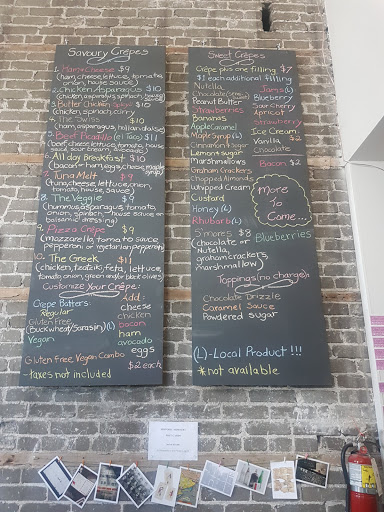 Savoury Crêpes
1. Ham + Cheese $9
(ham, cheese, lettuce, tomato,
onion, house sauce)
2. Chicken Asparagus $10
(chicken, asparagus, spinach, house sauce)
3. Butter Chicken $10
(chicken, spinach, curry)
4. The Swiss $10
(ham, asparagus, hollandaise)
5. Beef Picadillo (el Taco) $11
(beef, cheese, lettuce, tomato, house
sauce, sour cream,
6. All day Breakfast $10
(bacon or ham, eggs, cheese, maple syrup)
7. Tuna Melt $9
(tuna, cheese, lettuce, onion,
tomato, house sauce)
8. The Veggie $9
(hummus, asparagus, tomato,
onion, spinach - house sauce or
balsamic dressing)
9. Pizza Crêpe $9
(mozzarella, tomato sauce
pepperoni or vegetarian pepperoni)
10. The Greek $11
(chicken, tzatziki, feta, lettuce,
tomato, onion, green and/or black olives)
Customize Your Crêpe:
Crêpe Batters:
Regular
Gluten Free
(Buckwheat/Sarasin) (L)
Vegan
Gluten Free, Vegan Combo
- taxes not included
Add:
cheese
chicken
bacon
ham
avocado
eggs
$2 each
Sweet Crêpes
Crêpe plus one filling $7
$1 each additional filling
Nutella
Chocolate
Peanut Butter
Strawberries
Bananas
Apple Caramel
Maple Syrup (L)
Cinnamon + Sugar
Lemon + Sugar
Marshmallows
Graham Crackers
Chopped Almonds
Whipped Cream
Custard
Honey (L)
Rhubarb (L)
S'mores $8
(chocolate or
Nutella,
graham crackers
marshmallow)
Jams (L)
Blueberry
Sour Cherry
Apricot
Strawberry
Ice Cream
Vanilla $2
Chocolate
Bacon $2
More
To
Come...
Blueberries
Toppings (no charge):
Chocolate Drizzle
Caramel Sauce
Powdered Sugar
(L) - Local Product !!!
* not available